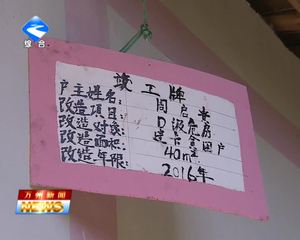 综合
竣工牌
户主姓名：周启安
改造项目：D级危房
改造对象：建卡贫困户
改造面积：40m²
改造年限：2016年
万州新闻
NEWS